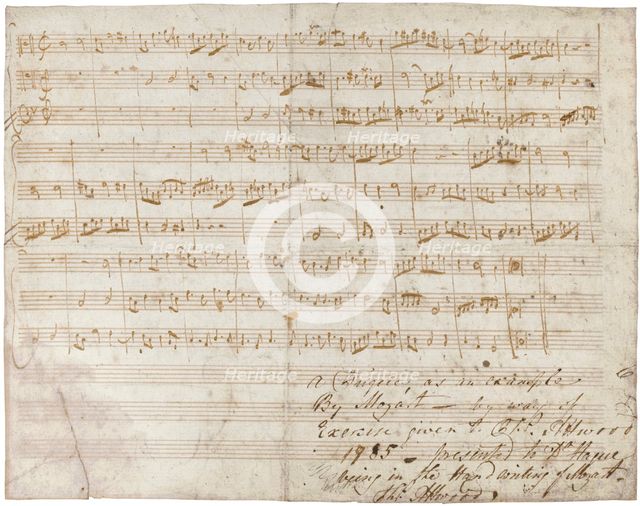 a Fugue, as an example
By Mozart — by way of
Exercise given to Th.s Attwood
1785 — presented to Dr Hague
being in the Hand writing of Mozart.
Tho.s Attwood.
Heritage
Heritage
Heritage
Heritage
Heritage
Heritage